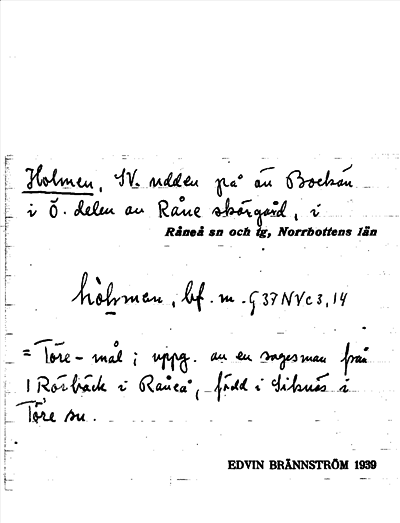 Holmen, SV. udden på ön Bockön
i Ö. delen av Råne skärgård, i
Råneå sn och tg, Norrbottens län
hòl̥man, bf. m. G37NVc3,14
= Töre-mål; uppg. av en sagesman från
Rörbäck i Råneå, född i Siknäs i
Töre sn.
EDVIN BRÄNNSTRÖM 1939